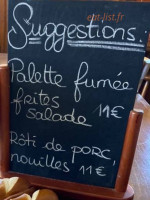 ept-list.fr
Suggestions.
Palette fumée
frites
salade 11€
Rôti de porc,
nouilles 11€